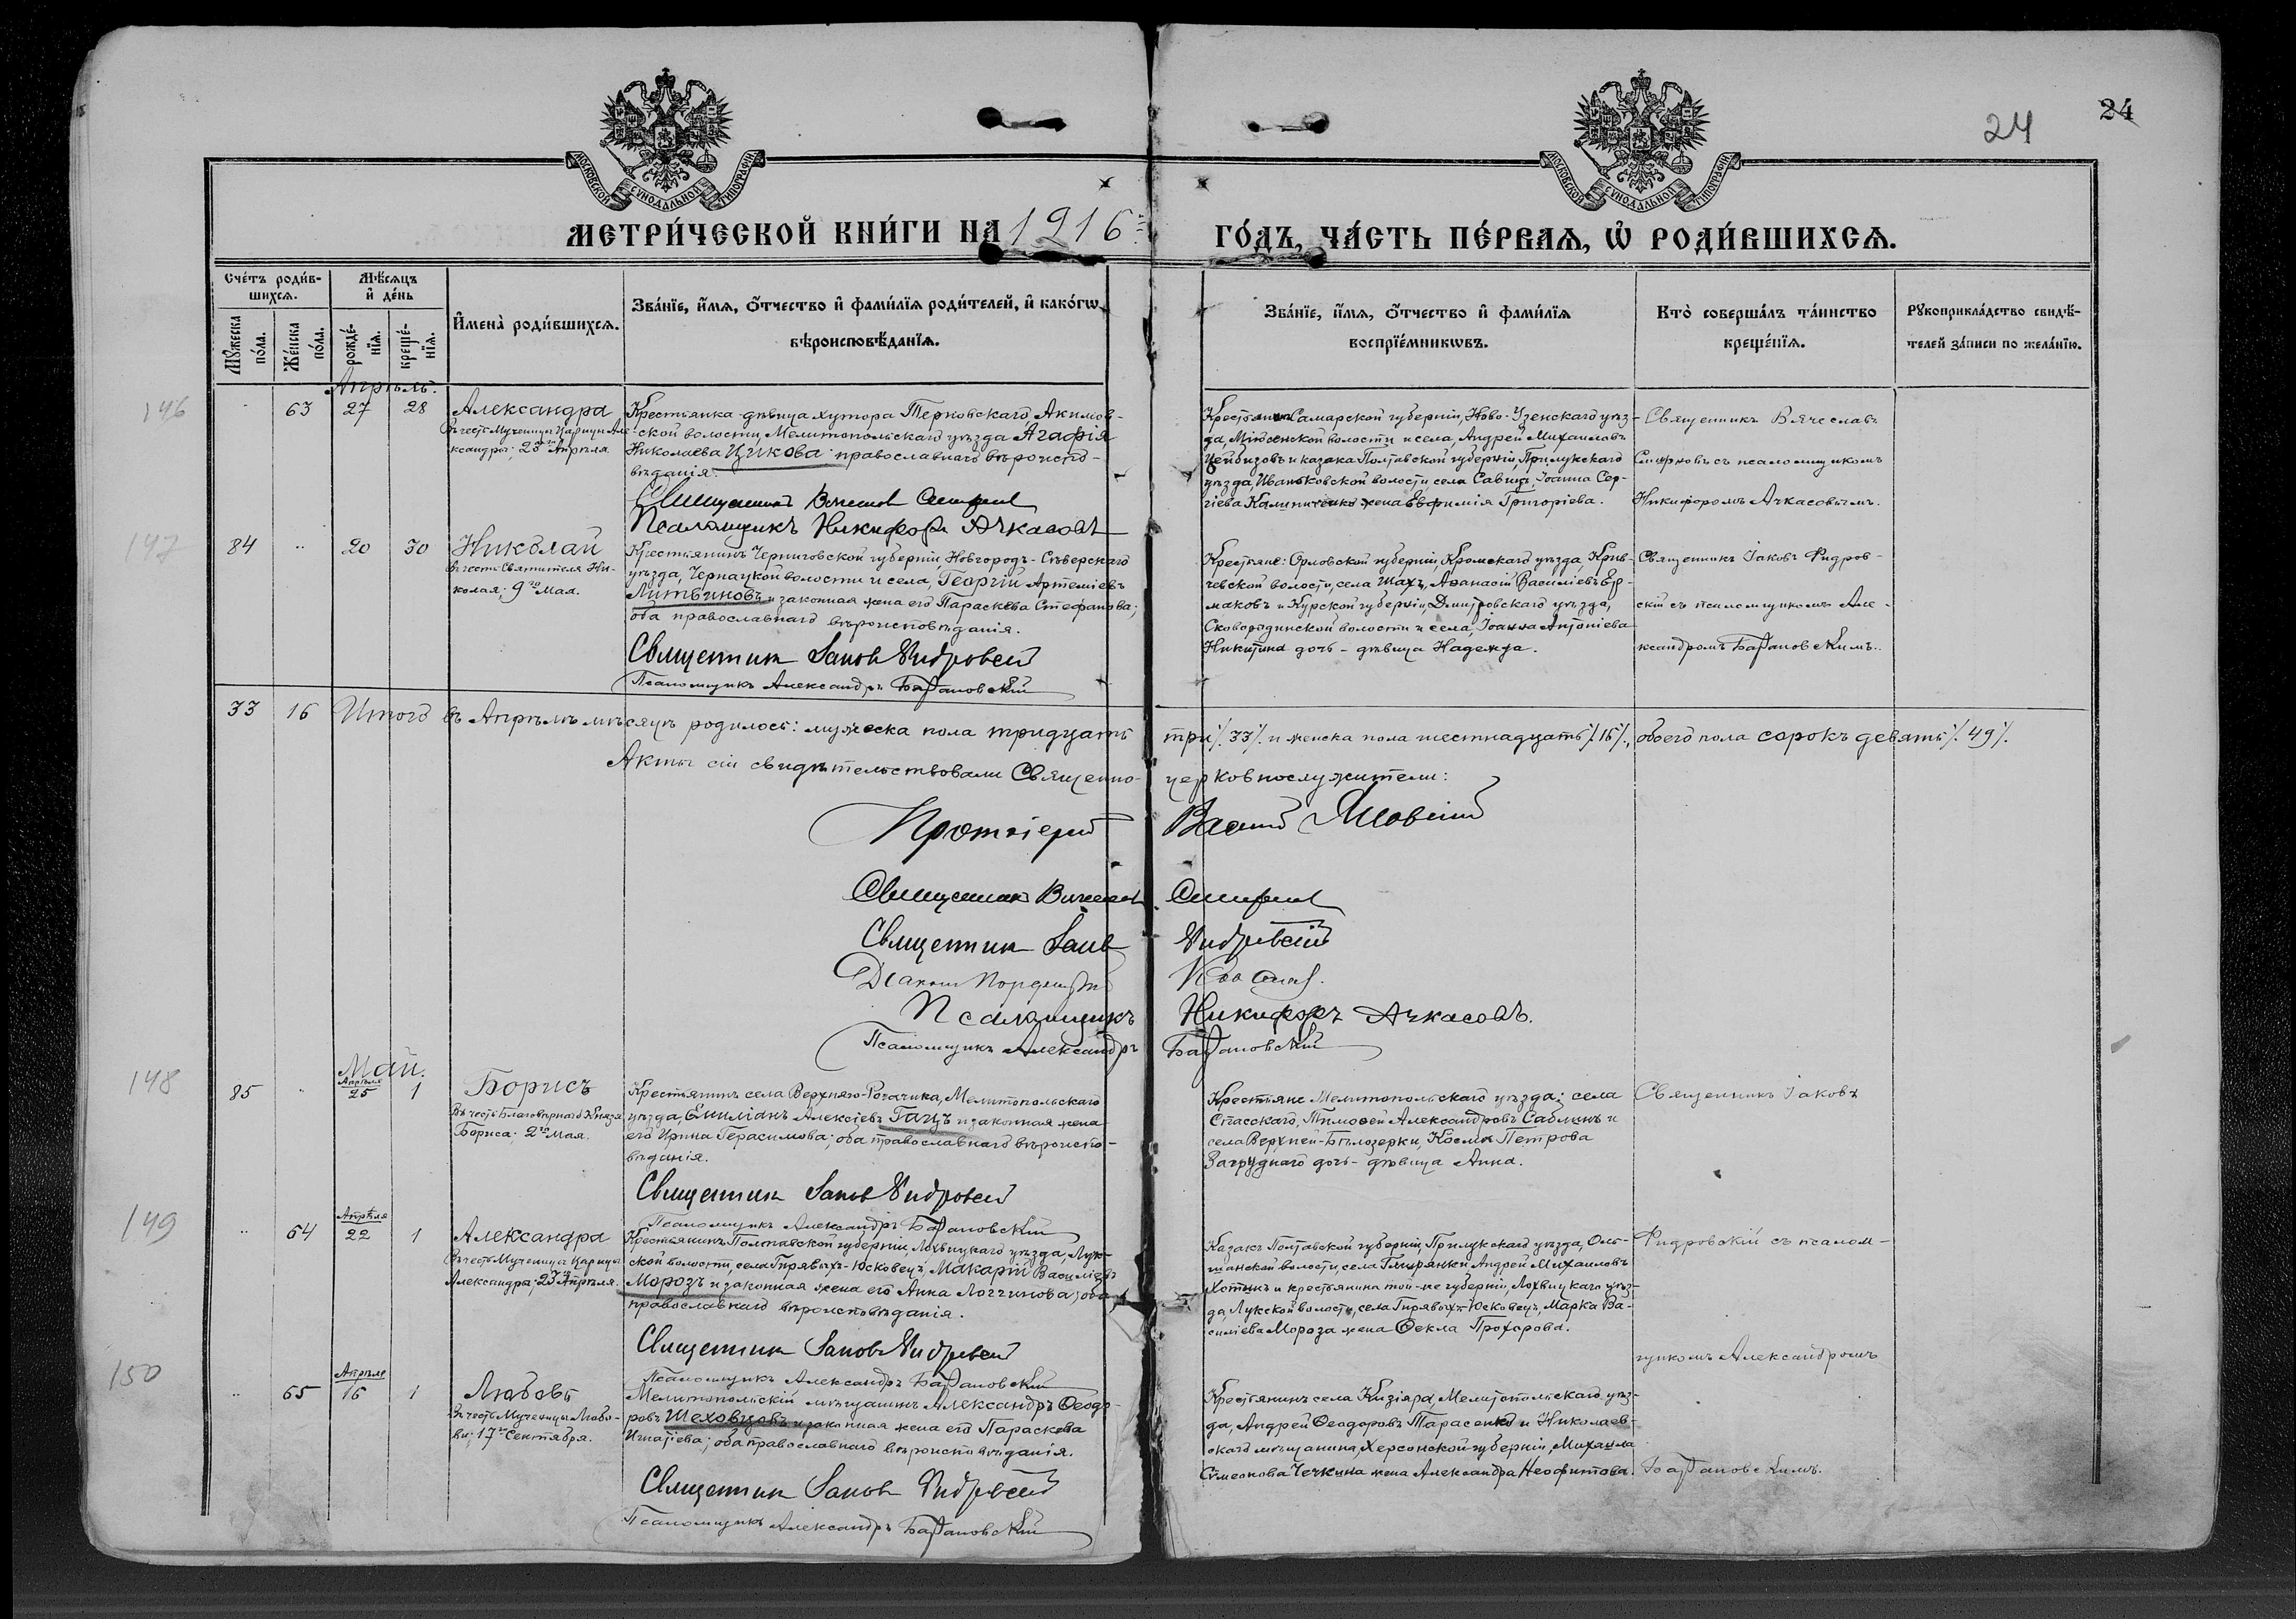 24
24
МОСКОВСКОЙ СѴНОДАЛЬНОЙ ТИПОГРАФІИ
МОСКОВСКОЙ СѴНОДАЛЬНОЙ ТИПОГРАФІИ
МЕТРИ́ЧЕСКОЙ КНИ́ГИ НА 1916 ГО́ДЪ, ЧА́СТЬ ПЕ́РВАѦ, Ѡ҆ РОДИ́ВШИХСѦ.
Сче́тъ роди́в-
шихсѧ.
Мꙋ́жеска
по́ла.
Же́нска
по́ла.
Мѣ́сѧцъ
и҆ де́нь
рожде́-
нїѧ.
креще́-
нїѧ.
И҆мена̀ роди́вшихсѧ.
Зва́нїе, и҆́мѧ, ѻ҆́тчество и҆ фами́лїѧ роди́телей, и҆ како́гѡ
вѣроисповѣ́данїѧ.
Зва́нїе, и҆́мѧ, ѻ҆́тчество и҆ фами́лїѧ
воспрїе́мникѡвъ.
Кто̀ соверша́лъ та́инство
креще́нїѧ.
Рꙋкоприкла́дство свидѣ́-
телей за́писи по жела́нїю.
Апрѣль.
146
63 27 28
Александра
Въ честь Мученицы Царицы Але-
ксандры; 23го Апрѣля
Крестьянка-дѣвица хутора Терновскаго Акимов-
ской волости, Мелитопольскаго уѣзда Агафія
Николаева Цикова; православнаго вѣроиспо-
вѣданія.
Священникъ Вячеслав Смирнов
Псаломщикъ Никифоръ Ачкасовъ
Самарской губерніи, Ново-Узенскаго уѣз-
да, волости и села, Андрей Михаиловъ
и казака Полтавской губерніи, Прилукскаго
уѣзда, Иваньковской волости села Савинъ, Іоанна Сер-
гіева Калиниченко жена Евфимія Григоріева.
Священникъ Вячеславъ
Смирновъ съ псаломщикомъ
Никифоромъ Ачкасовымъ.
147
84 20 30
Николай
Въ честь Святителя Ни-
колая; 9го Мая.
Крестьянинъ Черниговской губерніи, Новгородъ-Сѣверскаго
уѣзда, Чернацкой волости и села, Георгій Артеміевъ
Литвиновъ и законная жена его Параскева Стефанова;
оба православнаго вѣроисповѣданія.
Священник Іаков Фидровскій
Псаломщикъ Александръ Барановскій
Крестьяне: Орловской губерніи, Кромскаго уѣзда, Крив-
чевской волости, села Шахъ, Аѳанасій Василіевъ Ер-
маковъ и Курской губерніи, Дмитровскаго уѣзда,
Сковородинской волости и села, Іоанна Антоніева
Никитина дочь - дѣвица Надежда.
Священникъ Іаковъ Фидров-
скій съ псаломщикомъ Але-
ксандромъ Барановскимъ.
33 16 Итого въ Апрѣлѣ мѣсяцѣ родилось: мужеска пола тридцать три /.33/. и женска пола шестнадцать /.16/., обоего пола сорокъ девять /.49/.
Акты сіи свидѣтельствовали Священно-церковнослужители:
Протоіерей Василій
Священник Вячеслав Смирнов
Священник Іаков Фидровскій
Діаконъ
Псаломщикъ Никифоръ Ачкасовъ.
Псаломщикъ Александръ Барановскій
Май.
148
85 Апрѣля 25 1
Борисъ
Въ честь Благовѣрнаго Князя
Бориса; 2го Мая.
Крестьянинъ села Верхняго-Рогачика, Мелитопольскаго
уѣзда, Емиліанъ Алексіевъ Гацъ и законная жена
его Ирина Герасимова; оба православнаго вѣроиспо-
вѣданія.
Священник Іаков Фидровскій
Псаломщикъ Александръ Барановскій
Крестьяне Мелитопольскаго уѣзда; села
Спасскаго, Тимоѳей Александровъ Саблинъ и
села Верхней-Бѣлозерки, Косма Петрова
Загруднаго дочь - дѣвица Анна.
Священникъ Іаковъ
149
64 Апрѣля 22 1
Александра
Въ честь Мученицы Царицы
Александры; 23го Апрѣля.
Крестьянинъ Полтавской губерніи, Лохвицкаго уѣзда, Лук-
ской волости, села Гирявыхъ-Юсковецъ, Макарій Василіевъ
Морозъ и законная жена его Анна Логгинова; оба
православнаго вѣроисповѣданія.
Священник Іаков Фидровскій
Псаломщикъ Александръ Барановскій
Казакъ Полтавской губерніи, Прилукскаго уѣзда, Оль-
шанской волости, села Андрей Михаиловъ
и крестьянина той-же губерніи, Лохвицкаго уѣз-
да, Лукской волости, села Гирявыхъ-Юсковецъ, Марка Ва-
силіева Мороза жена Ѳекла Прохорова.
Фидровскій съ псалом-
щикомъ Александромъ
150
65 Апрѣля 16 1
Любовь
Въ честь Мученицы Любо-
ви; 17го Сентября.
Мелитопольскій мѣщанинъ Александръ Ѳеодо-
ровъ Шеховцовъ и законная жена его Параскева
Игнатіева; оба православнаго вѣроисповѣданія.
Священник Іаков Фидровскій
Псаломщикъ Александръ Барановскій
Крестьянинъ села Кизіяра, Мелитопольскаго уѣз-
да, Андрей Ѳеодоровъ Тарасенко и Николаев-
скаго мѣщанина, Херсонской губерніи, Михаила
Сѵмеонова Чечкина жена Александра Неофитова.
Барановскимъ.